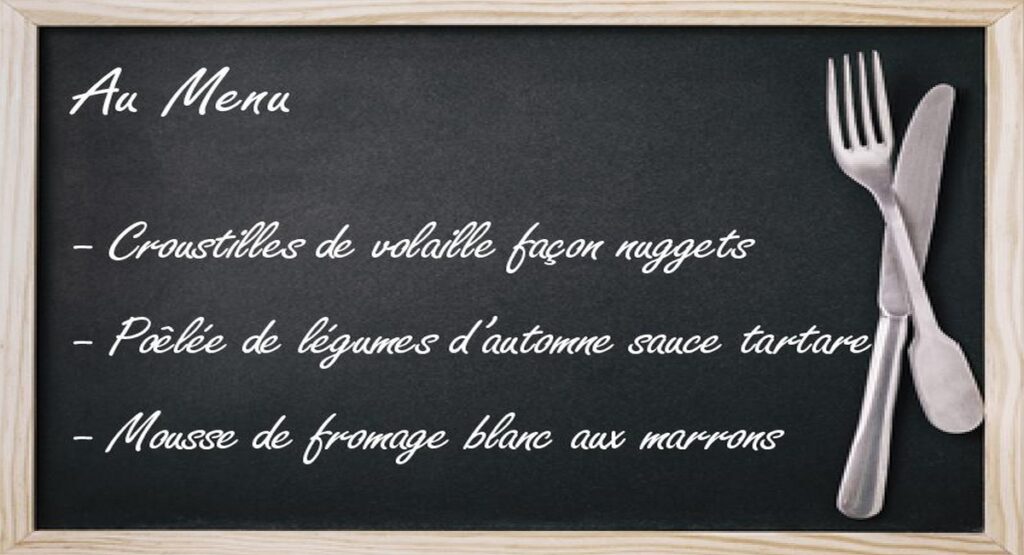 Au Menu
- Croustilles de volaille façon nuggets
- Poêlée de légumes d'automne sauce tartare
- Mousse de fromage blanc aux marrons